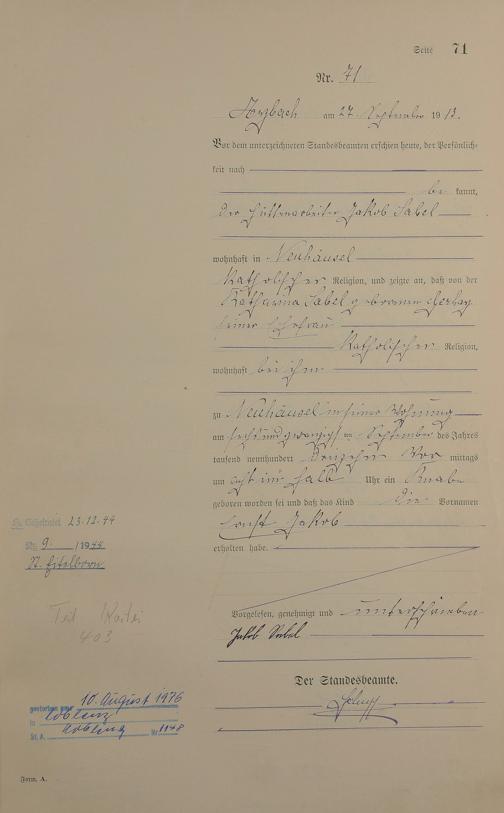 Seite 71
Nr. 71
Arzbach am 27. September 1913.
Vor dem unterzeichneten Standesbeamten erschien heute, der Persönlich-
keit nach
be kannt,
der Hüttenarbeiter Jakob Sabel
wohnhaft in Neuhäusel
Katholischer Religion, und zeigte an, daß von der
Katharina Sabel geborenen
seiner Ehefrau
Katholischer Religion,
wohnhaft bei ihm
zu Neuhäusel in seiner Wohnung
am sechsundzwanzigsten September des Jahres
tausend neunhundert dreizehn Vor mittags
um acht ein halb Uhr ein Knabe
geboren worden sei und daß das Kind die Vornamen
Ernst Jakob
erhalten habe.
Vorgelesen, genehmigt und unterschrieben
Jakob Sabel
Der Standesbeamte.
23.12.44
Nr. 9 /1944
St. Eitelborn
Teil Kartei
403
gestorben am 10. August 1976
in Koblenz
St. A. Koblenz Nr. 1148
Form. A.